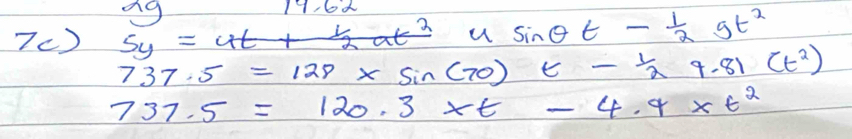 2g 19.62
7c) Sy = ut + ½ at² u sinθ t - ½ gt²
737.5 = 128 x Sin(70) t - ½ 9.81 (t²)
737.5 = 120.3 xt - 4.9 x t²